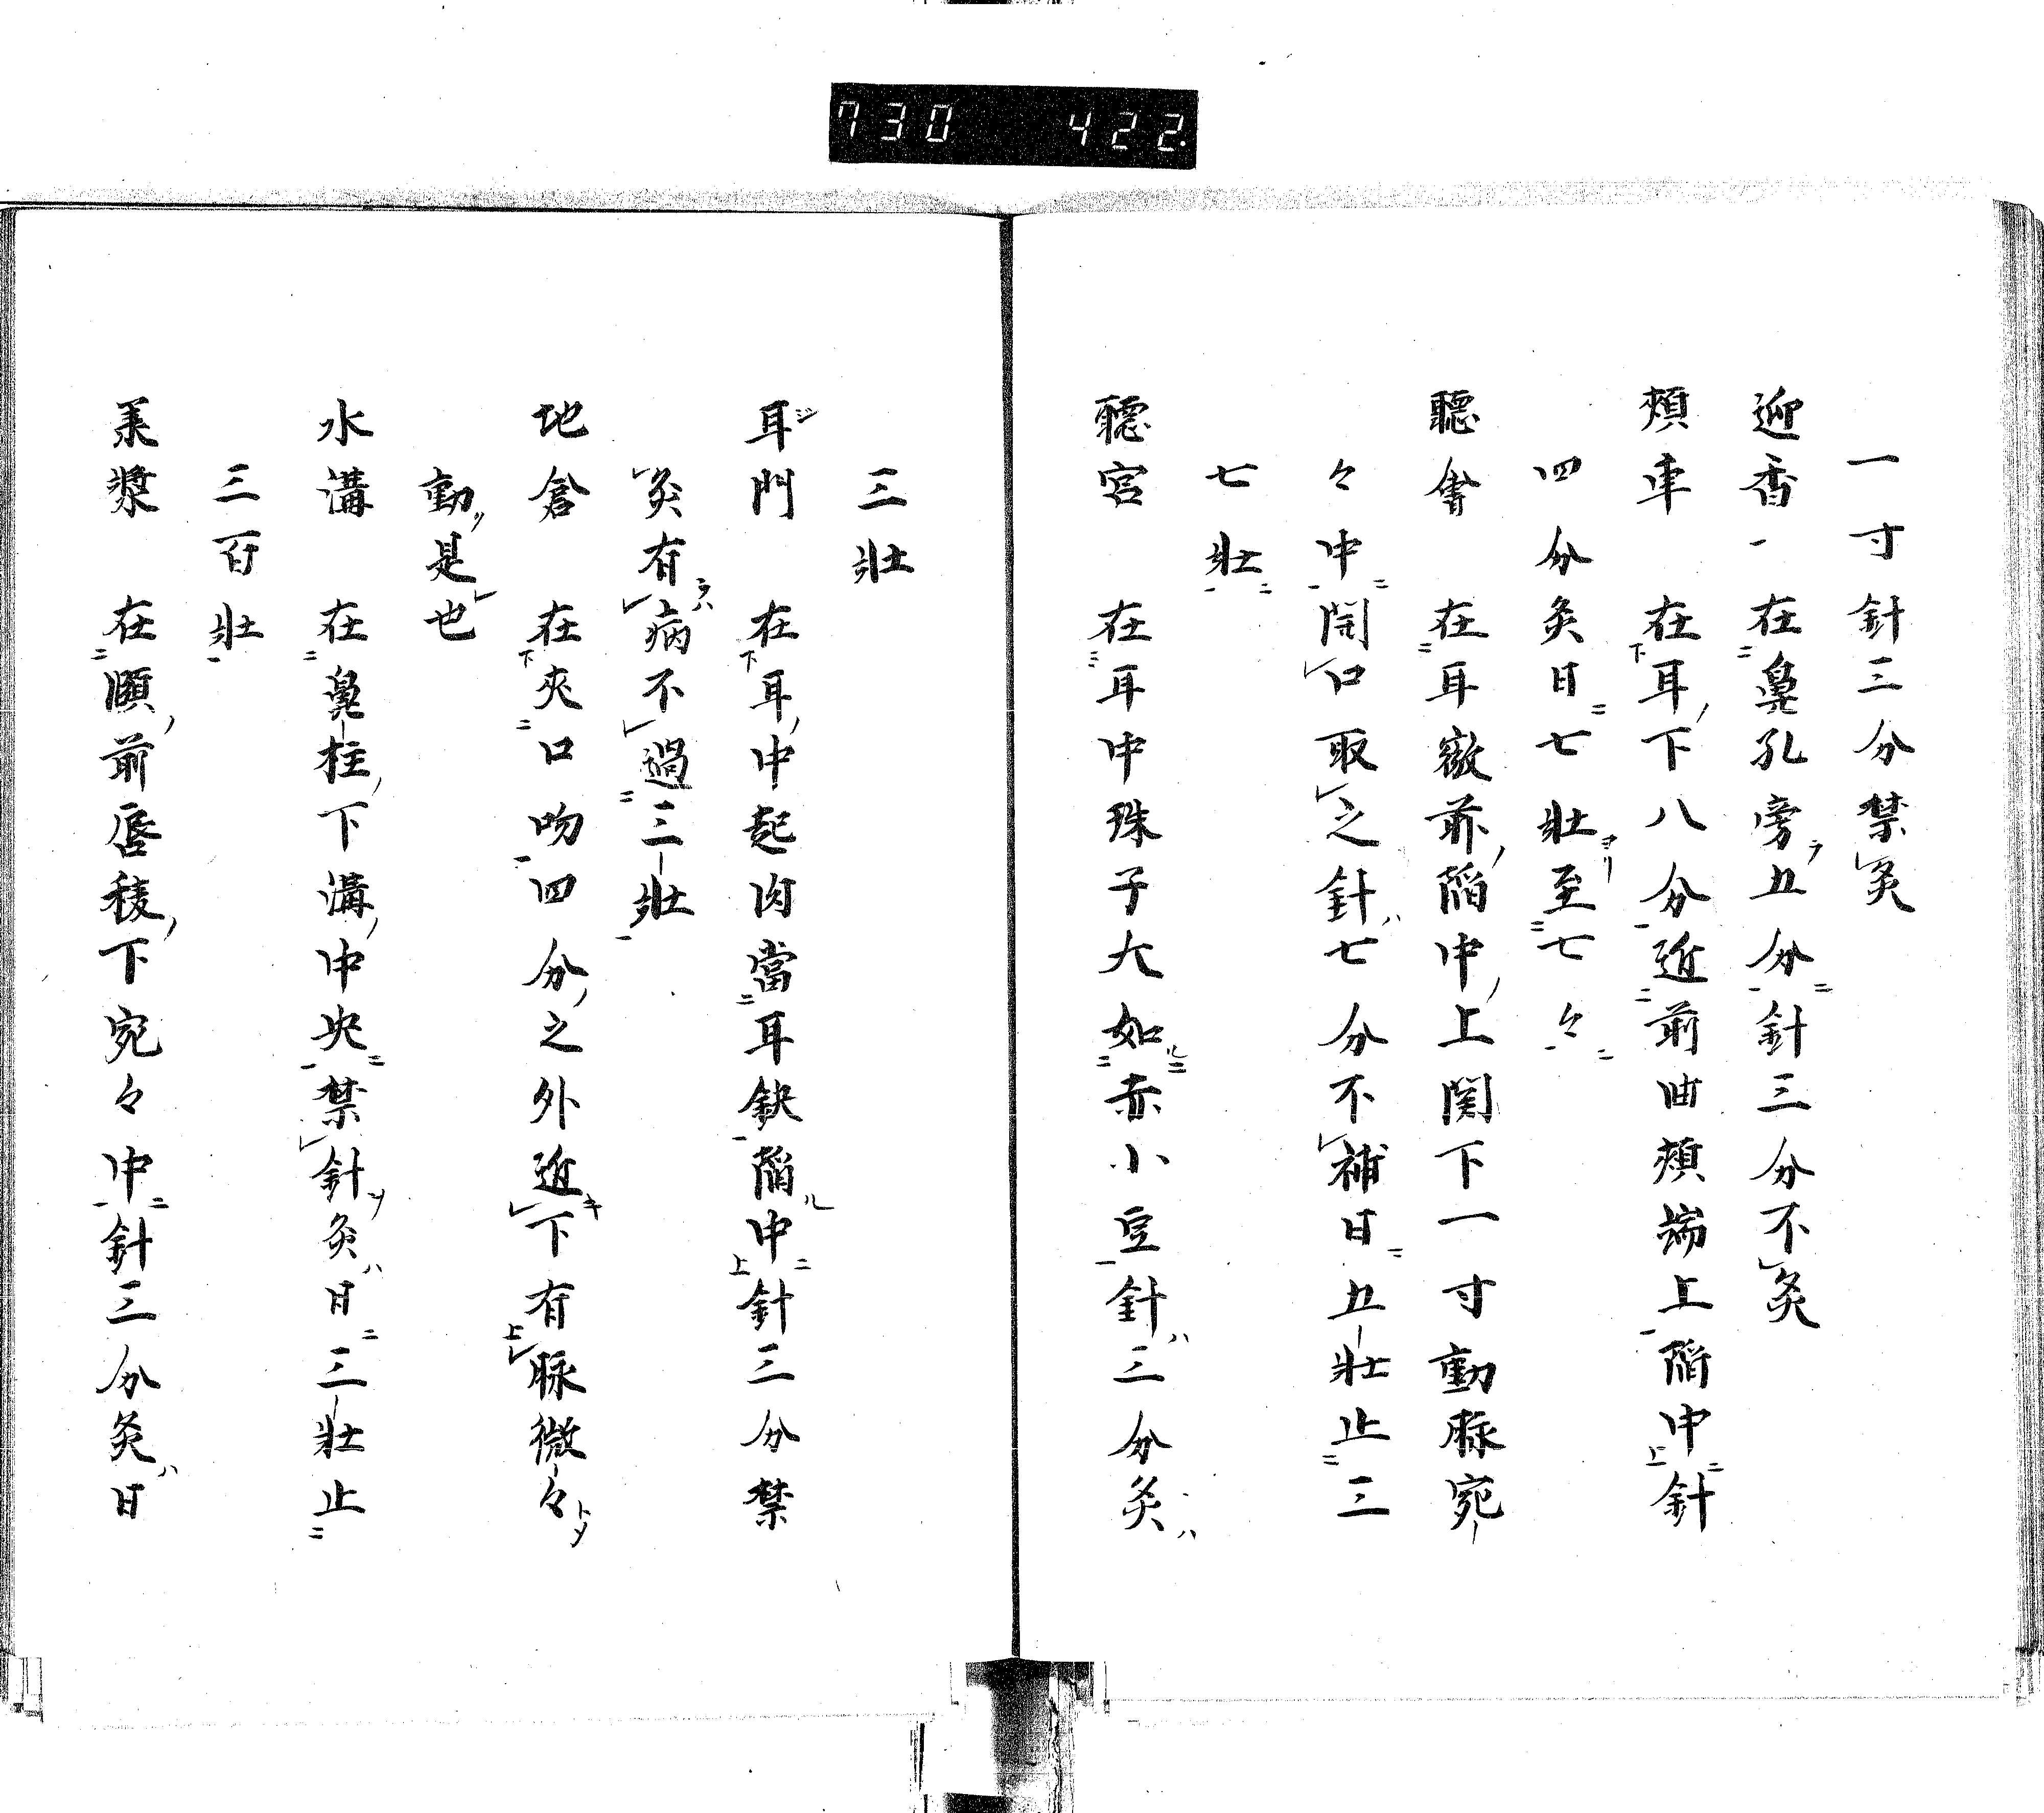 730 422
一寸針三分禁灸
迎香 在鼻孔旁五分針三分不灸
頬車 在耳下八分近前曲頬端上陥中針
四分灸日七壮至七々
聴會 在耳微前陥中上関下一寸動脉宛
々中開口取之針七分不補日五壮止三
七壮
聴宮 在耳中珠子大如赤小豆針三分灸
三壮
耳門 在耳中起肉當耳鈌陥中針三分禁
灸有病不過三壮
地倉 在夾口吻四分之外近下有脉微々
動是也
水溝 在鼻柱下溝中央禁針灸日三壮止
三百壮
漿 在頤前唇稜下宛々中針三分灸日